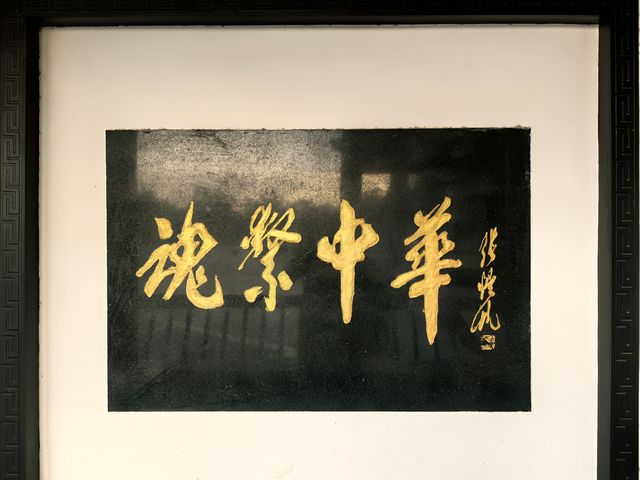 魂繫中華